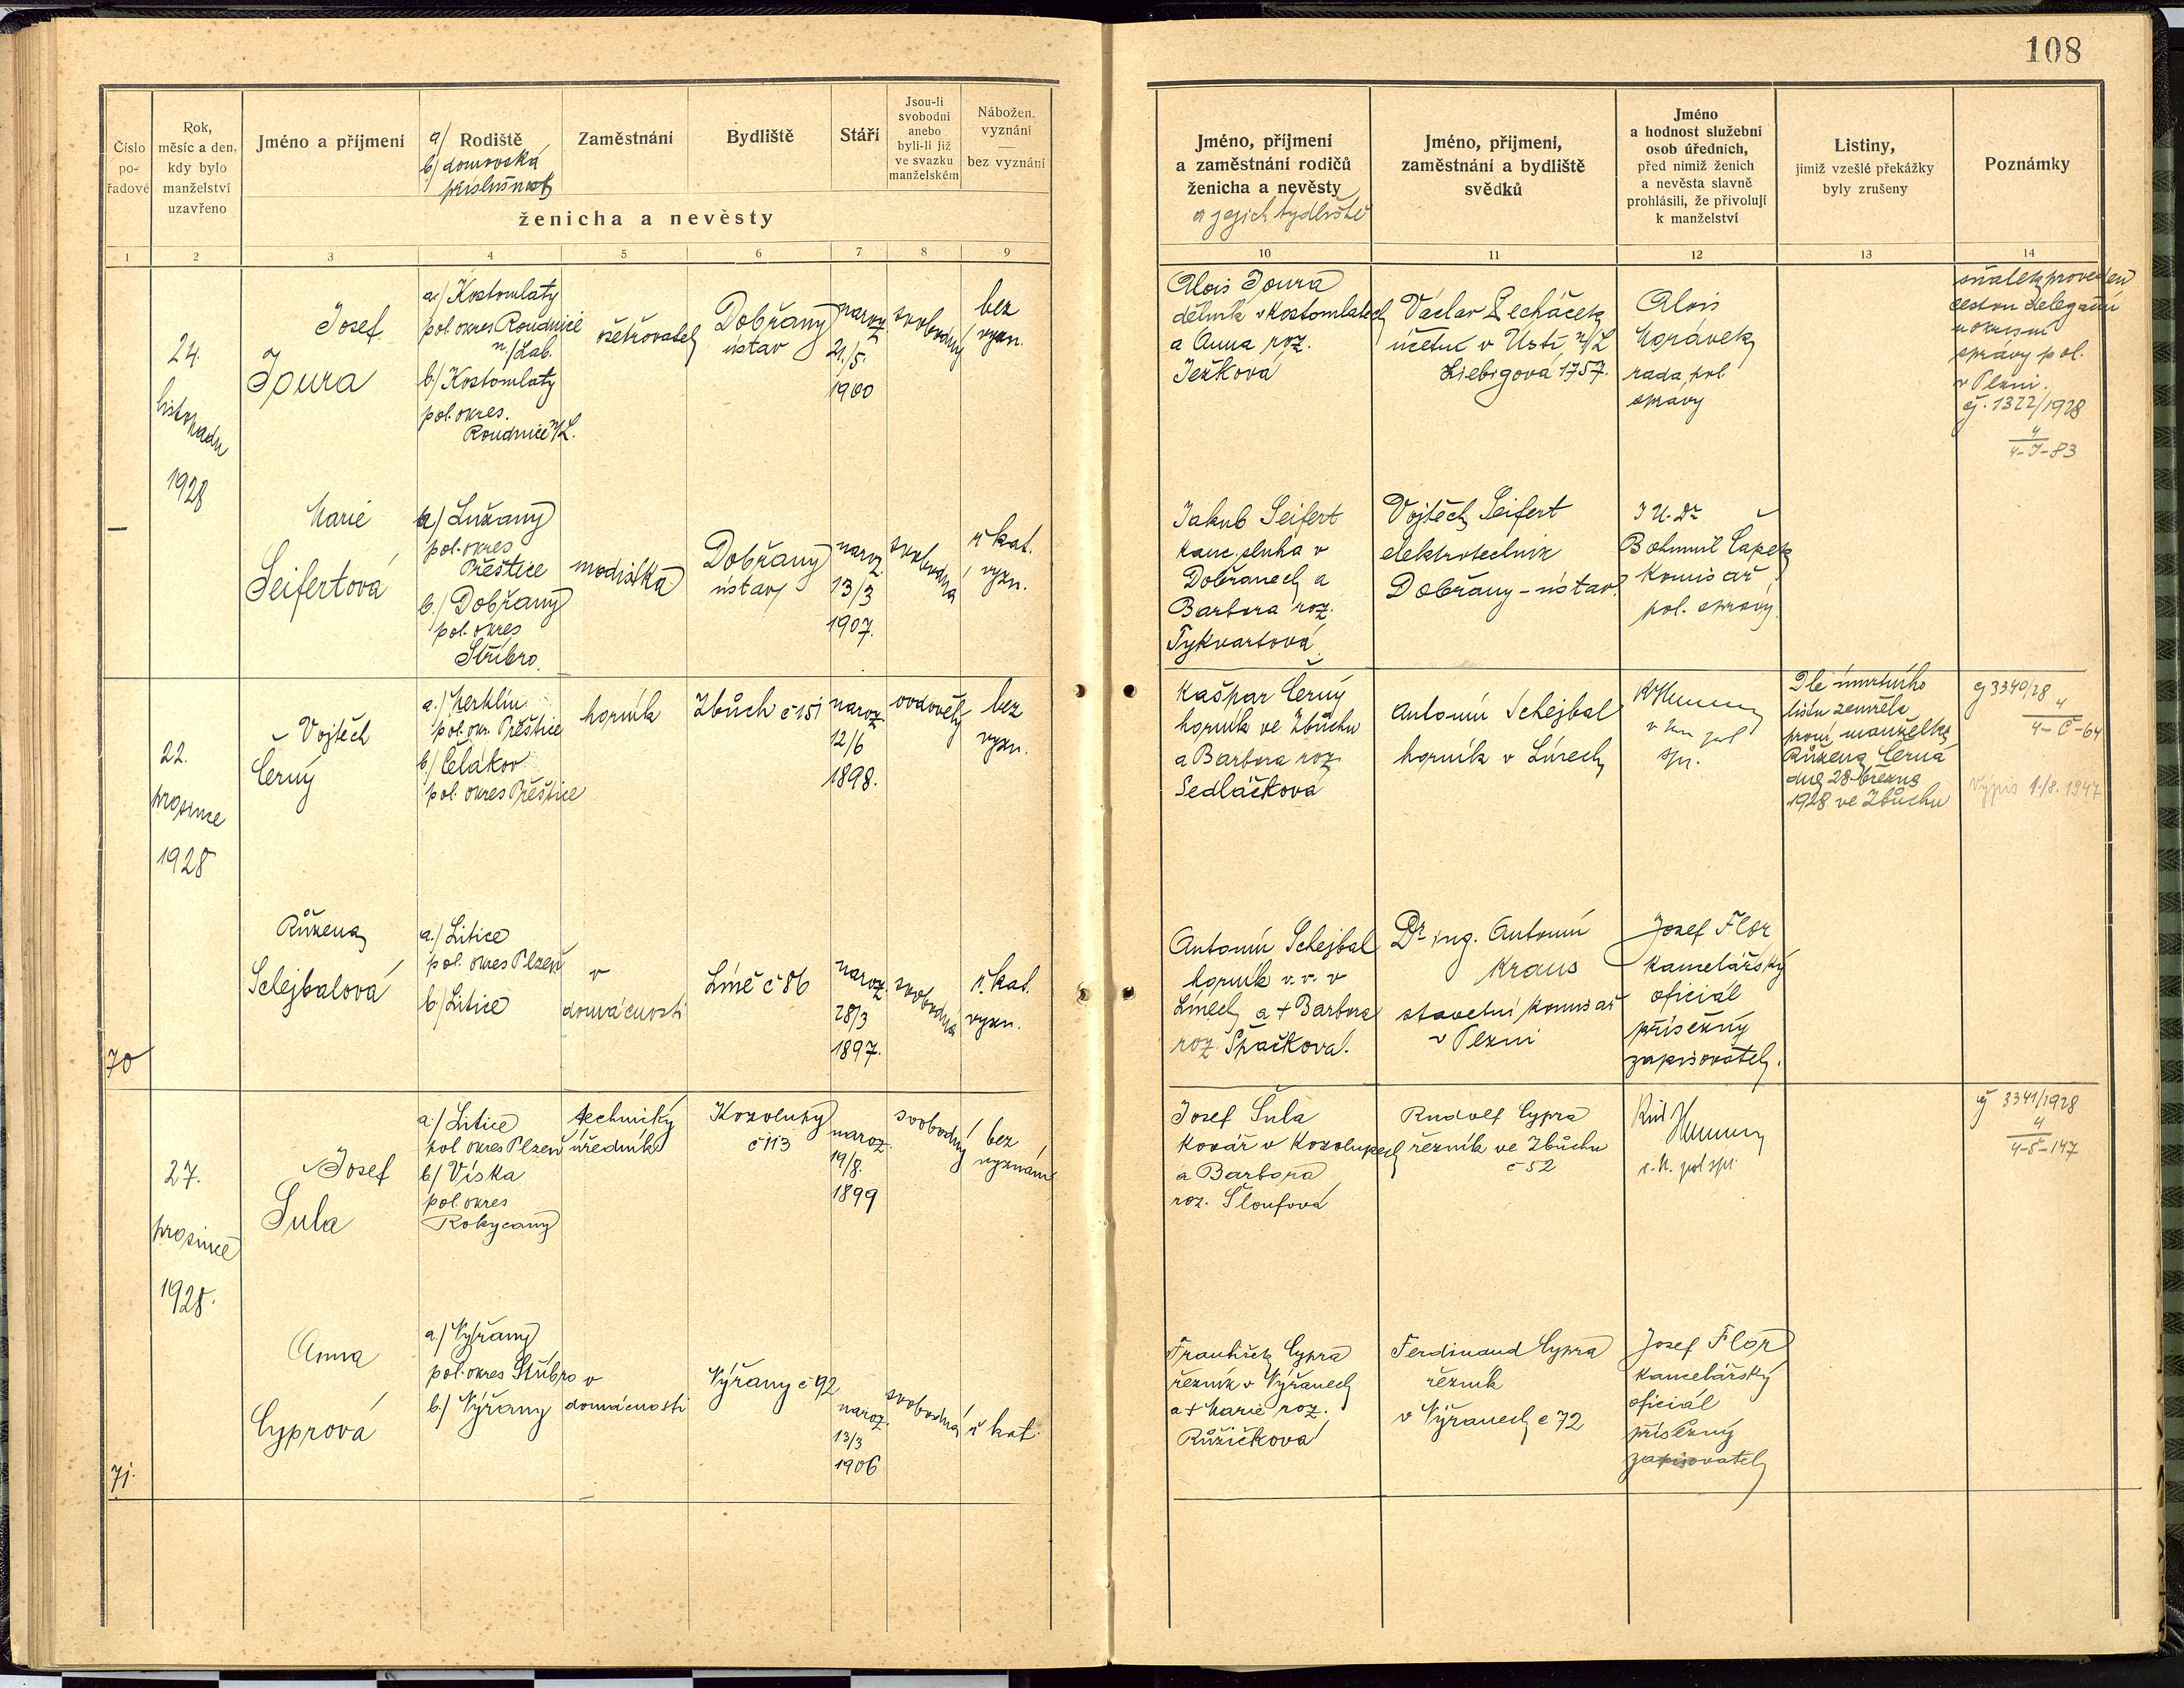 108
Číslo
po-
řadové
Rok,
měsíc a den,
kdy bylo
manželství
uzavřeno
Jméno a příjmení
a/ Rodiště
b/ domovská
příslušnost
Zaměstnání
Bydliště
Stáří
Jsou-li
svobodni
anebo
byli-li již
ve svazku
manželském
Nábožen.
vyznání
—
bez vyznání
ženicha a nevěsty
Jméno, příjmení
a zaměstnání rodičů
ženicha a nevěsty
a jejich bydliště
Jméno, příjmení,
zaměstnání a bydliště
svědků
Jméno
a hodnost služební
osob úředních,
před nimiž ženich
a nevěsta slavně
prohlásili, že přivolují
k manželství
Listiny,
jimiž vzešlé překážky
byly zrušeny
Poznámky
1 2 3 4 5 6 7 8 9 10 11 12 13 14
—
24.
listopadu
1928
Josef
Joura
a/ Kostomlaty
pol. okres Roudnice
n/Lab.
b/ Kostomlaty
pol. okres.
Roudnice n/L.
ošetřovatel
Dobřany
ústav
naroz.
21./5.
1900
svobodný
bez
vyzn.
Alois Joura
dělník v Kostomlatech
a Anna roz.
Ježková
Václav Lecháček
účetní v Ústí n/L
Liebigová 1757.
Alois
Horávek
rada pol.
správy
sňatek proveden
cestou delegační
u okresní
správy pol.
v Plzni.
čj. 1322/1928
4
4-J-83
Marie
Seifertová
a/ Lužany
pol. okres
Přeštice
b/ Dobřany
pol. okres
Stříbro.
modistka
Dobřany
ústav
naroz.
13/3
1907.
svobodná
ř. kat.
vyzn.
Jakub Seifert
kanc. sluha v
Dobřanech a
Barbora roz.
Tykvartová.
Vojtěch Seifert
elektrotechnik
Dobřany - ústav.
JU. Dr
Bohumil Čapek
komisař
pol. správy
70
22.
prosince
1928
Vojtěch
Černý
a./ Merklín
pol. okr. Přeštice
b/ Čelákov
pol. okres Přeštice
horník
Zbůch č 151
naroz.
12/6
1898.
ovdovělý
bez
vyzn.
Kašpar Černý
horník ve Zbůchu
a Barbora roz.
Sedláčková
Antonín Schejbal
horník v Línech
Dle úmrtního
listu zemřela
první manželka
Růžena Černá
dne 28. března
1928 ve Zbůchu
čj 3340/28
4
4-Č-64
Výpis 1./8. 1947
Růžena
Schejbalová
a./ Litice
pol. okres Plzeň
b/ Litice
v
domácnosti
Líně č 86
naroz.
28/3
1897.
svobodná
ř. kat.
vyzn.
Antonín Schejbal
horník v. v. v
Línech a + Barbora
roz. Špačková.
Dr. ing. Antonín
Kraus
stavební komisař
v Plzni
Josef Flor
kancelářský
oficiál
přísežný
zapisovatel.
71.
27.
prosince
1928.
Josef
Šula
a./ Litice
pol okres Plzeň
b/ Víska
pol. okres
Rokycany
technický
úředník
Kozolupy
č 113
naroz.
19/8.
1899
svobodný
bez
vyznání
Josef Šula
kovář v Kozolupech
a Barbora
roz. Šloufová
Rudolf Cypra
řezník ve Zbůchu
č 52
čj 3341/1928
4
4-Š-147
Anna
Cyprová
a./ Výřany
pol. okres Stříbro
b/ Výřany
v
domácnosti
Výřany č 92
naroz.
13/3
1906
svobodná
ř kat.
František Cypra
řezník v Výřanech
a + Marie roz.
Růžičková
Ferdinand Cypra
řezník
v Výřanech č 72
Josef Flor
kancelářský
oficiál
přísežný
zapisovatel